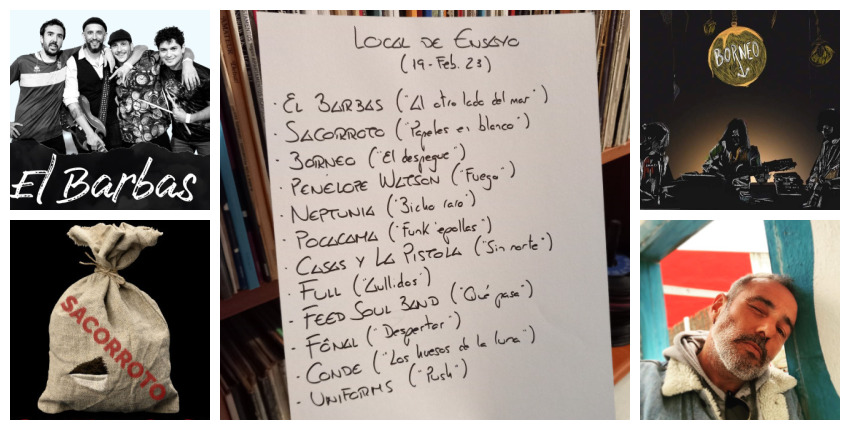 El Barbas
SACORROTO
LOCAL DE ENSAYO
(19-Feb. 23)
· EL BARBAS ("Al otro lado del mar")
· SACORROTO ("Papeles en blanco")
· BORNEO ("El despegue")
· PENÉLOPE WATSON ("Fuego")
· NEPTUNIA ("Bicho raro")
· POCACAMA ("Funk'epollas")
· CASAS Y LA PISTOLA ("Sin norte")
· FULL ("Aullidos")
· FEED SOUL BAND ("Qué pasa")
· FÉNAL ("Despertar")
· CONDE ("Los huesos de la luna")
· UNIFORMS ("Push")
BORNEO